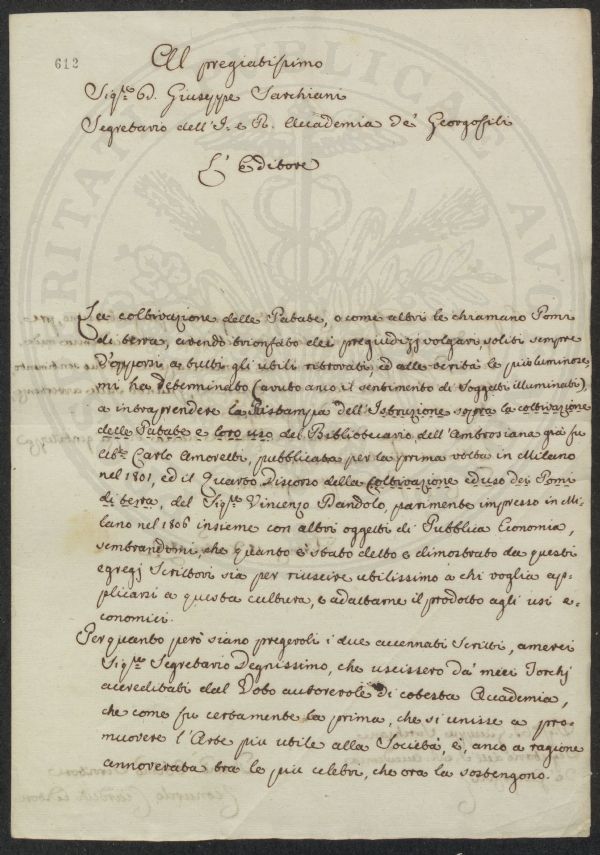 612
Al pregiatissimo
Sig.re D. Giuseppe Sarchiani
Segretario dell'I. e R. Accademia de' Georgofili
L'Editore
La coltivazione delle Patate, o come altri le chiamano Pomi
di terra, avendo trionfato dei pregiudizj volgari soliti sempre
d'opporsi a tutti gli utili ritrovati, ed alle verità le più luminose
mi ha determinato (avuto anco il sentimento di Soggetti illuminati)
a intraprendere la Ristampa dell'Istruzione sopra la coltivazione
delle Patate e loro uso del Bibliotecario dell'Ambrosiana già fu
Carlo Amoretti, pubblicata per la prima volta in Milano
nel 1801, ed il Quarto Discorso della Coltivazione ed uso dei Pomi
di terra, del Sig.re Vincenzo Dandolo, parimente impresso in Mi-
lano nel 1806 insieme con altri oggetti di Pubblica Economia,
sembrandomi, che quanto è stato detto e dimostrato da questi
egregj Scrittori sia per riuscire utilissimo a chi voglia ap-
plicarsi a questa cultura, e adattarne il prodotto agli usi e-
conomici.
Per quanto però siano pregevoli i due accennati Scritti, amerei
Sig.re Segretario Degnissimo, che uscissero da' miei Torchj
accreditati dal Voto autorevole di cotesta Accademia,
che come fu certamente la prima, che si unisse a pro-
muovere l'Arte più utile alla Società, è, anco a ragione
annoverata tra le più celebri, che ora la sostengono.